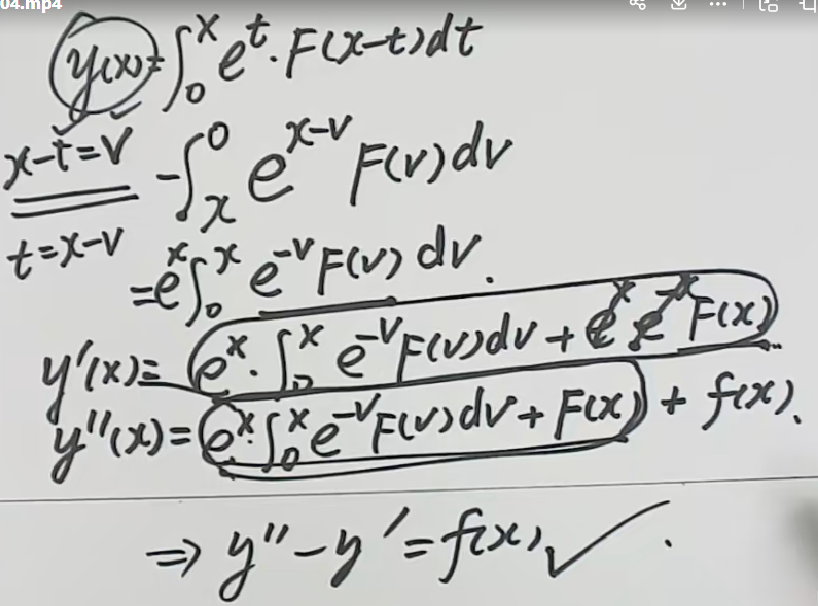 04.mp4
y(x)=∫₀ˣ eᵗ·F(x-t)dt
x-t=v
-∫ₓ⁰ e^{x-v} F(v)dv
t=x-v
=eˣ∫₀ˣ e^{-v}F(v) dv.
y'(x)= eˣ·∫₀ˣ e^{-v}F(v)dv + eˣ e^{-x}F(x)
y''(x)= eˣ·∫₀ˣ e^{-v}F(v)dv + F(x) + f(x).
⇒ y''-y'=f(x) ✓.